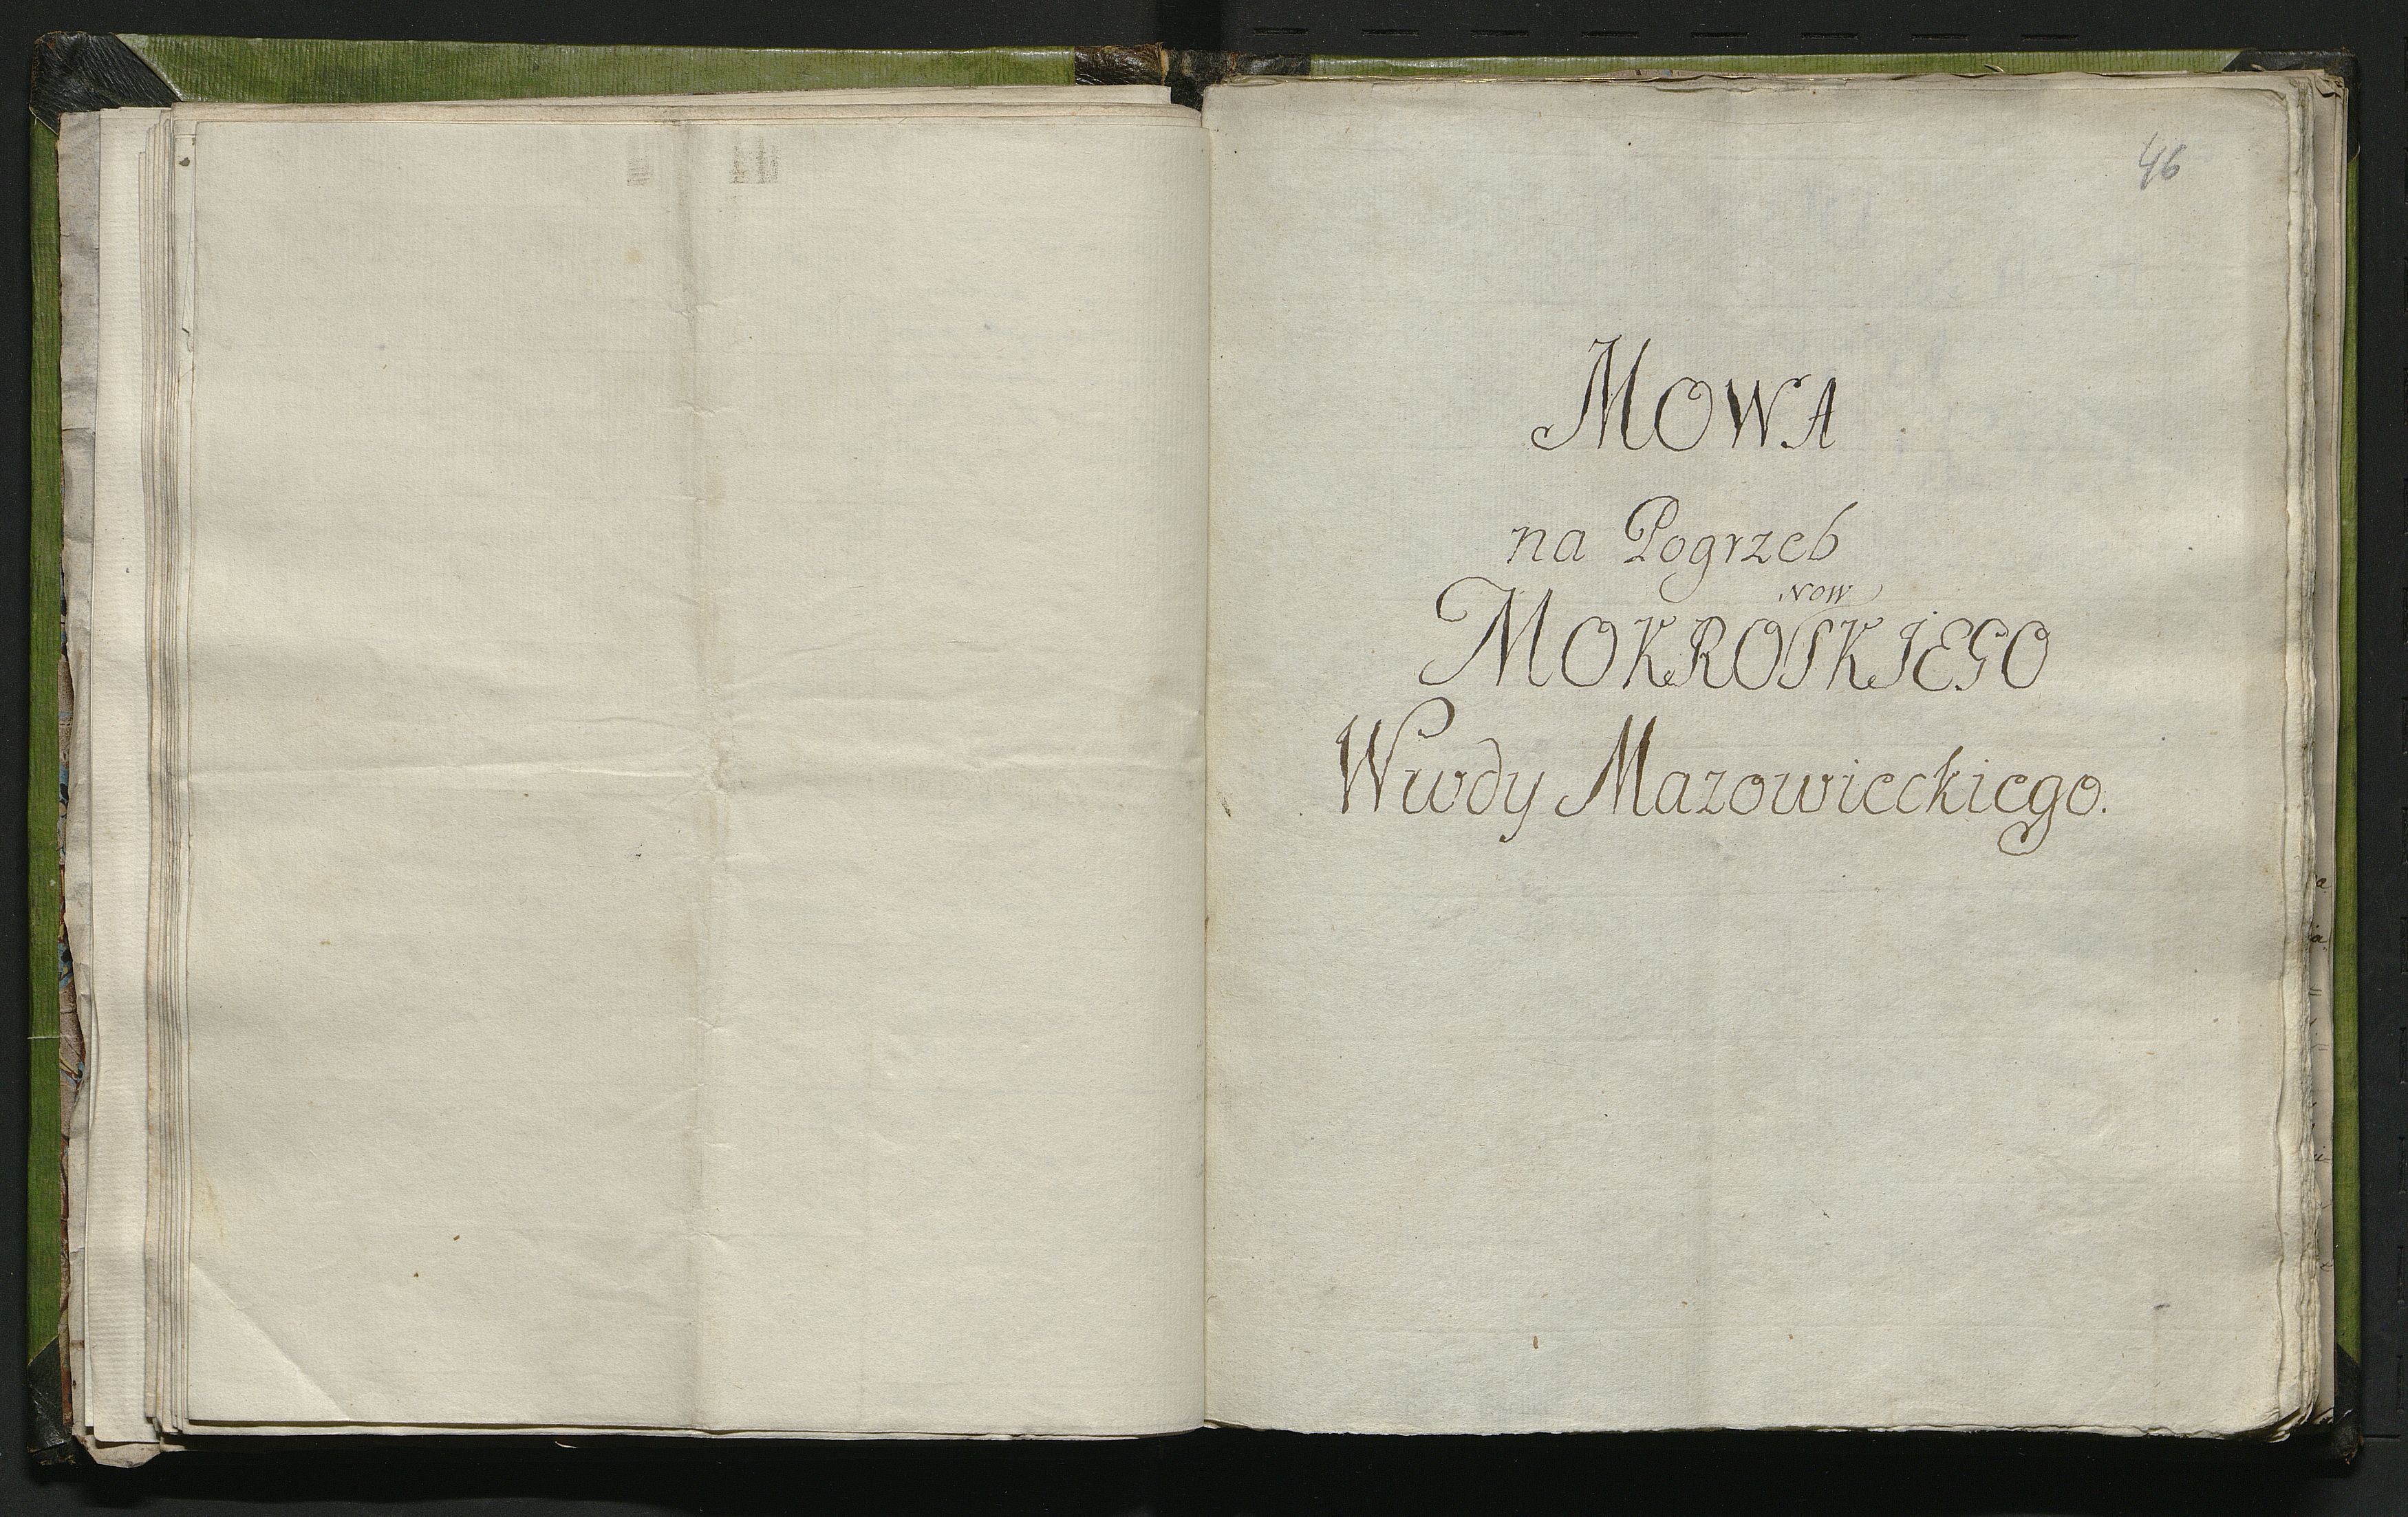 46
MOWA
na Pogrzeb
NOW
MOKROSKIEGO
Wwdy Mazowieckiego.